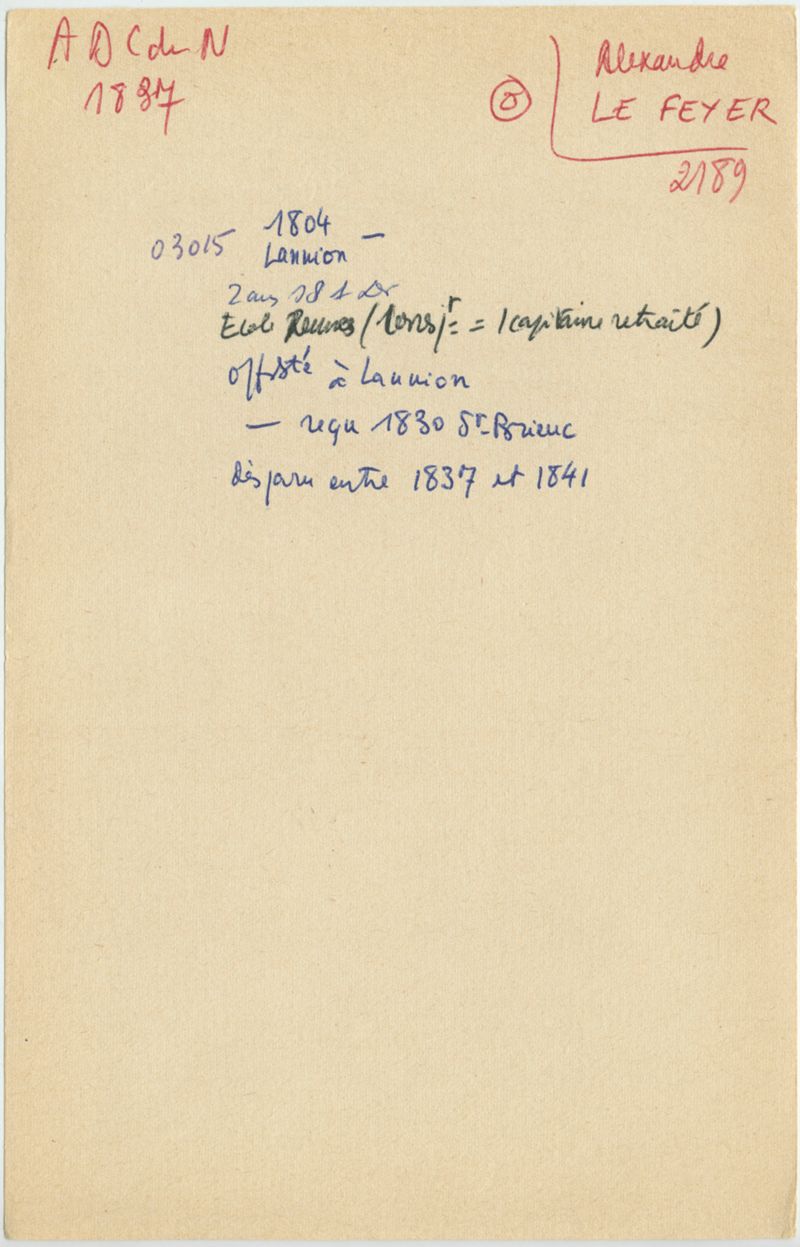 A D C du N
1837
Alexandre
LE FEYER
2189
1804
03015 Lannion —
2 ans
Ecole Rennes ( = 1 capitaine retraité)
à Lannion
— reçu 1830 St-Brieuc
disparu entre 1837 et 1841